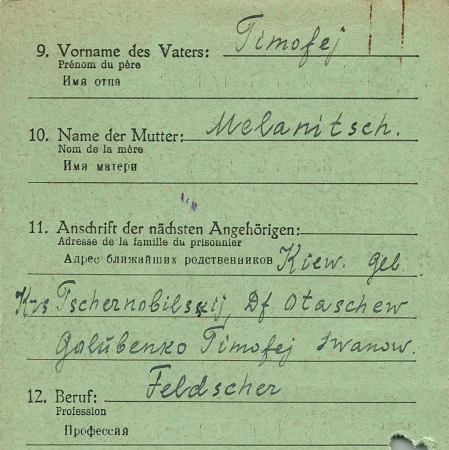 9. Vorname des Vaters: Timofej
Prénom du père
Имя отца
10. Name der Mutter: Melanitsch.
Nom de la mère
Имя матери
11. Anschrift der nächsten Angehörigen:
Adresse de la famille du prisonnier
Адрес ближайших родственников Kiew. geb.
Krs Tschernobilskij, Df Otaschew
Golubenko Timofej Iwanow.
12. Beruf: Feldscher
Profession
Профессия